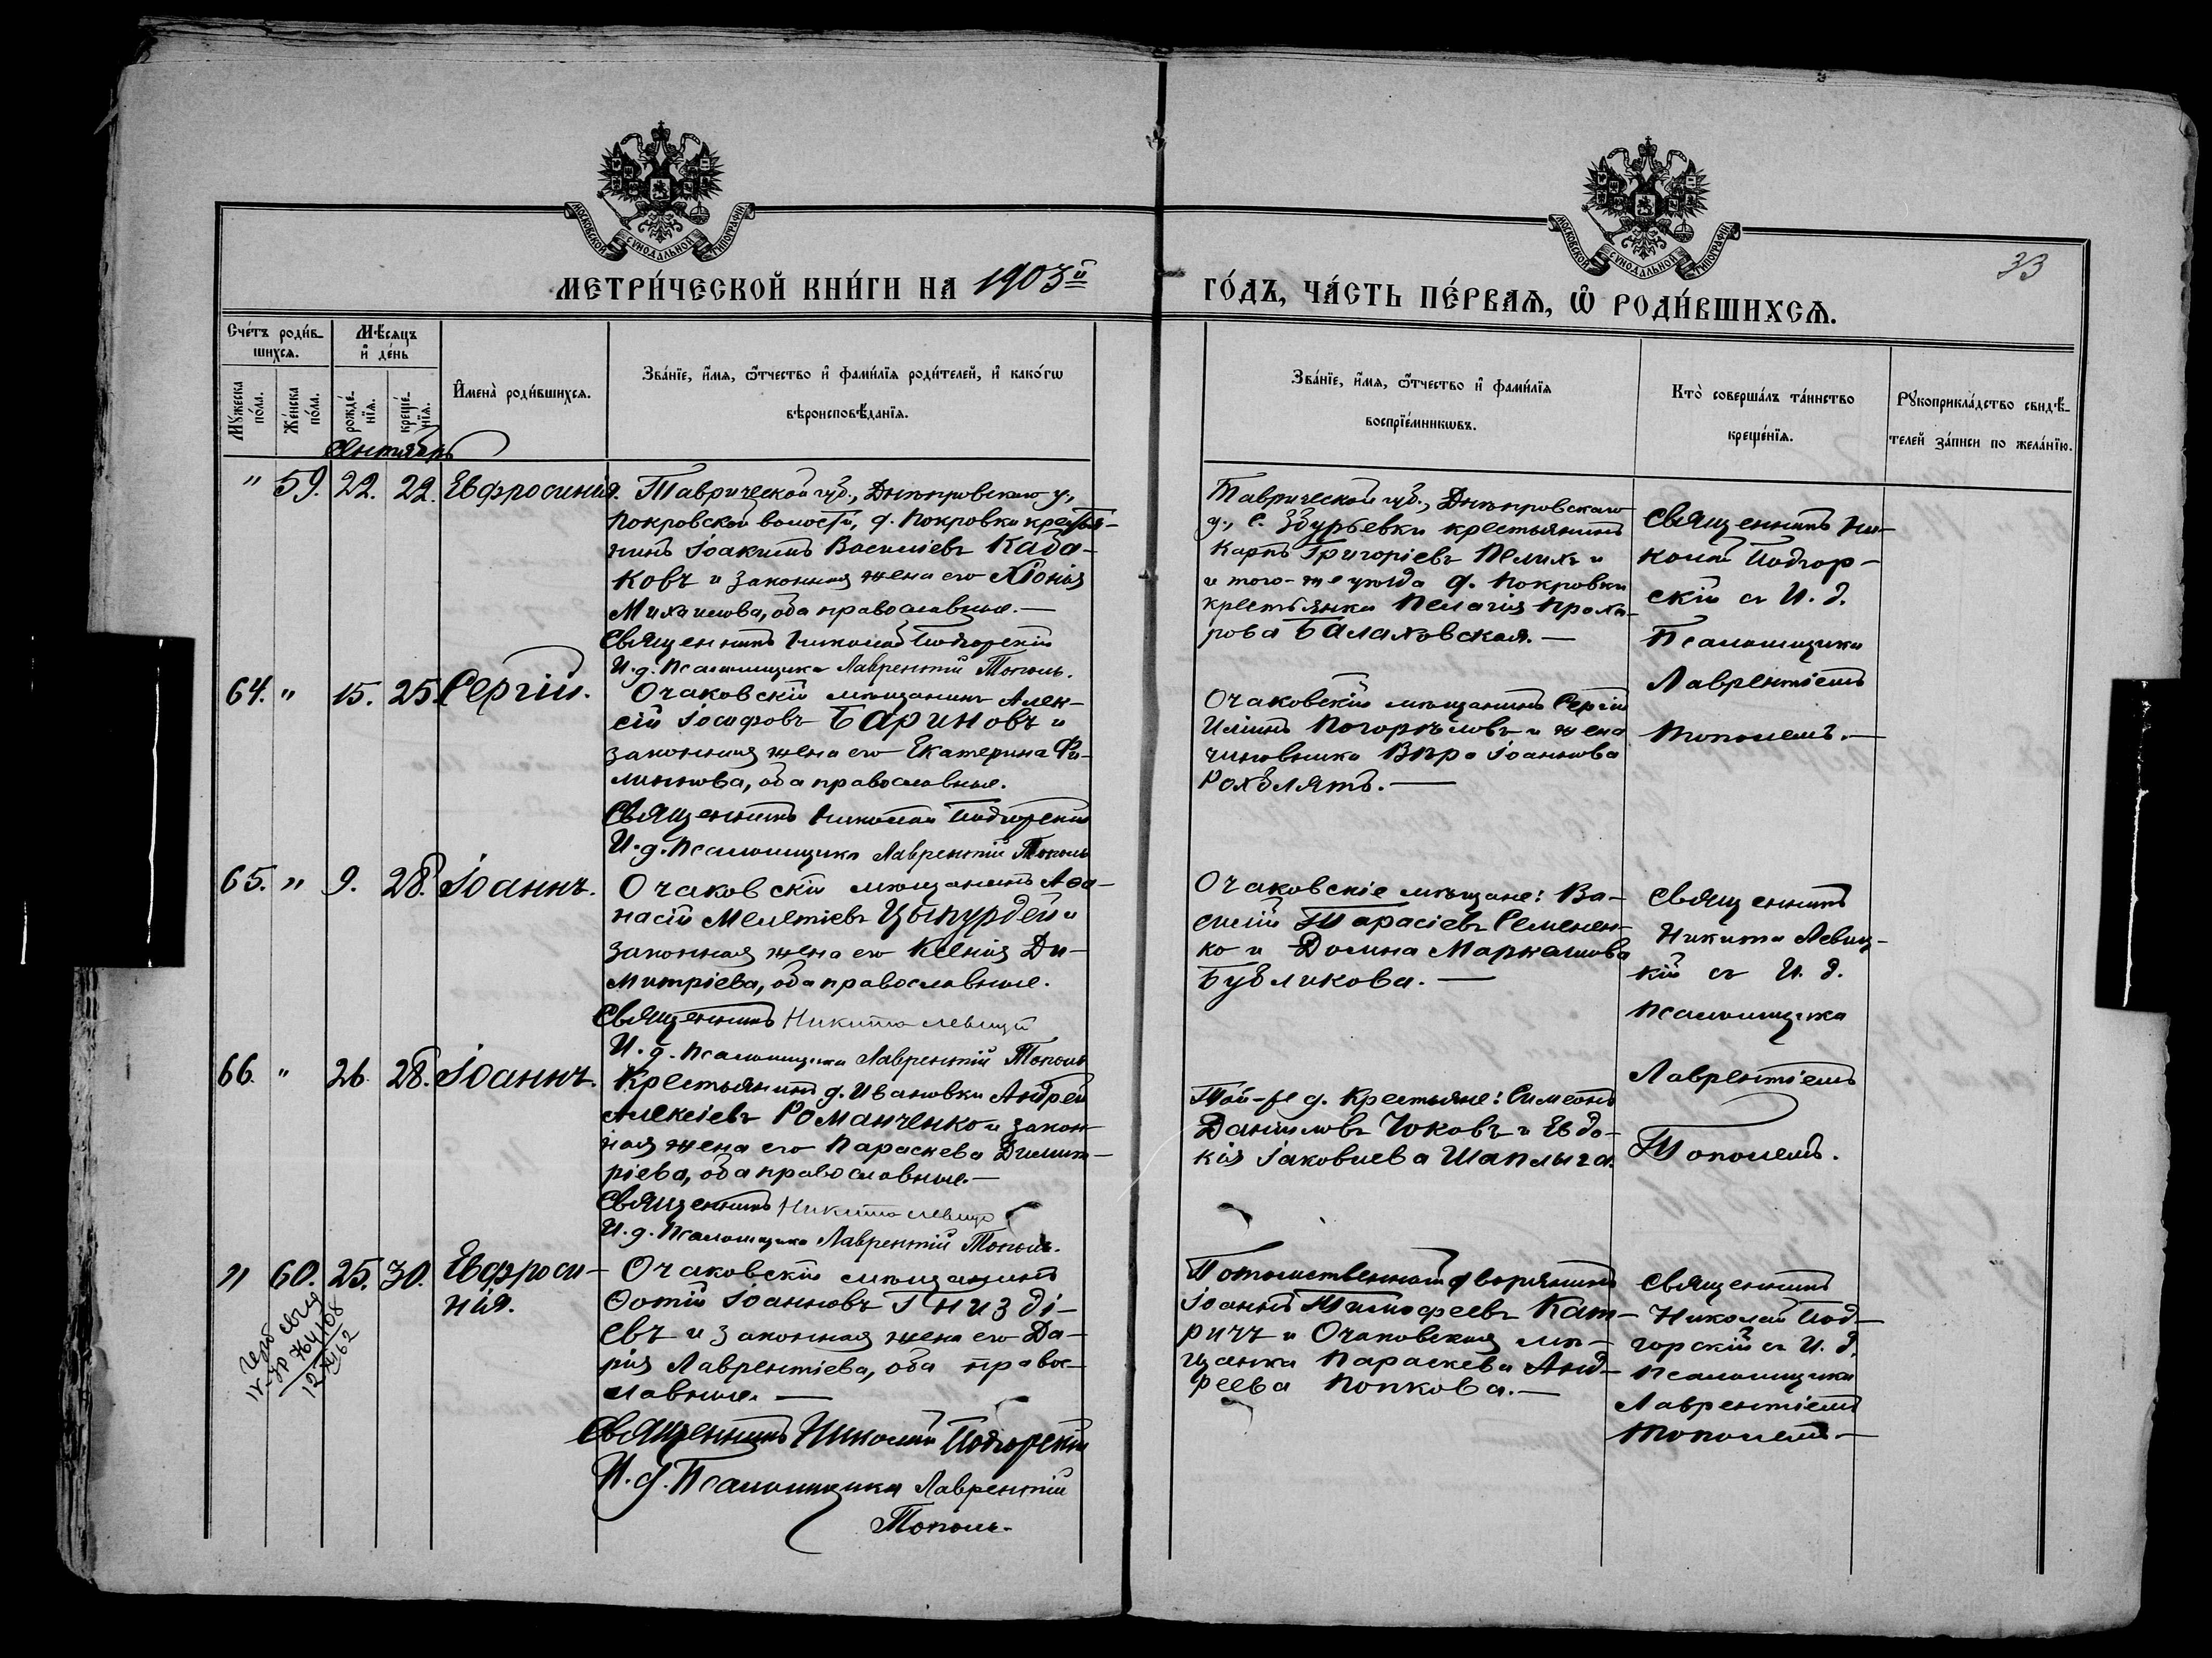 МОСКОВСКОЙ СѴНОДАЛЬНОЙ ТИПОГРАФІИ
МОСКОВСКОЙ СѴНОДАЛЬНОЙ ТИПОГРАФІИ
33
МЕТРИ́ЧЕСКОЙ КНИ́ГИ НА 1903й ГО́ДЪ, ЧА́СТЬ ПЕ́РВАѦ, Ѡ҆ РОДИ́ВШИХСѦ.
Сче́тъ роди́в-
шихсѧ.
Мꙋ́жеска по́ла.
Же́нска по́ла.
Мѣ́сяцъ
и҆ де́нь
рожде́-нїѧ.
креще́-нїѧ.
И҆мена̀ роди́вшихсѧ.
Зва́нїе, и҆́мѧ, ѻ҆́тчество и҆ фами́лїѧ роди́телей, и҆ како́гѡ
вѣроисповѣ́данїѧ.
Зва́нїе, и҆́мѧ, ѻ҆́тчество и҆ фами́лїѧ
воспрїе́мникѡвъ.
Кто̀ соверша́лъ та́инство
креще́нїѧ.
Рꙋкоприкла́дство свидѣ́-
телей за́писи по жела́нїю.
Сентябрь
" 59. 22. 22. Евфросинія.
Таврической губ., Днѣпровскаго у.,
Покровской волости, д. Покровки крестья-
нинъ Іоакимъ Василіевъ Каба-
ковъ и законная жена его Хіонія
Михаилова, оба православные. —
Священникъ Николай Подгорскій
И. д. Псаломщика Лаврентій Тополь.
Таврической губ., Днѣпровскаго
у., с. Збурьевки крестьянинъ
Карпъ Григоріевъ Пелихъ и
и того-же уѣзда д. Покровки
крестьянка Пелагія Прохо-
рова Балаховская. —
Священникъ Ни-
колай Подгор-
скій съ И. д.
Псаломщика
Лаврентіемъ
Тополемъ. —
64. " 15. 25. Сергій.
Очаковскій мѣщанинъ Алек-
сій Іосифовъ Бариновъ и
законная жена его Екатерина Фи-
липпова, оба православные.
Священникъ Николай Подгорскій
И. д. Псаломщика Лаврентій Тополь
Очаковскій мѣщанинъ Сергій
Иліинъ Погорѣловъ и жена
чиновника Вѣра Іоаннова
65. " 9. 28. Іоаннъ.
Очаковскій мѣщанинъ Аѳа-
насій Мелетіевъ Цыпурдей и
законная жена его Ксенія Ди-
митріева, оба православные.
Священникъ Никита Левицкій
И. д. Псаломщика Лаврентій Тополь
Очаковскіе мѣщане: Ва-
силій Тарасіевъ Семенен-
ко и Домна
Бубликова. —
Священникъ
Никита Левиц-
кій съ И. д.
Псаломщика
Лаврентіемъ
Тополемъ.
66. " 26. 28. Іоаннъ.
Крестьянинъ д. Ивановки Андрей
Алексіевъ Романченко и закон-
ная жена его Параскева Димит-
ріева, оба православные. —
Священникъ Никита Левицкій
И. д. Псаломщика Лаврентій Тополь.
Той-же д. Крестьяне: Симеонъ
Даниловъ Чоковъ и Евдо-
кія Іаковлева Шаплыга.
" 60. 25. 30. Евфроси-
нія.
Очаковскій мѣщанинъ
Ѳотій Іоанновъ Гнизді-
евъ и законная жена его Да-
рія Лаврентіева, оба право-
славные. —
Священникъ Николай Подгорскій
И. д. Псаломщика Лаврентій
Тополь.
Потомственный дворянинъ
Іоаннъ Тимофеевъ Кат-
ричъ и Очаковская мѣ-
щанка Параскева Анд-
реева Попкова. —
Священникъ
Николай Под-
горскій съ И. д.
Псаломщика
Лаврентіемъ
Тополемъ. —